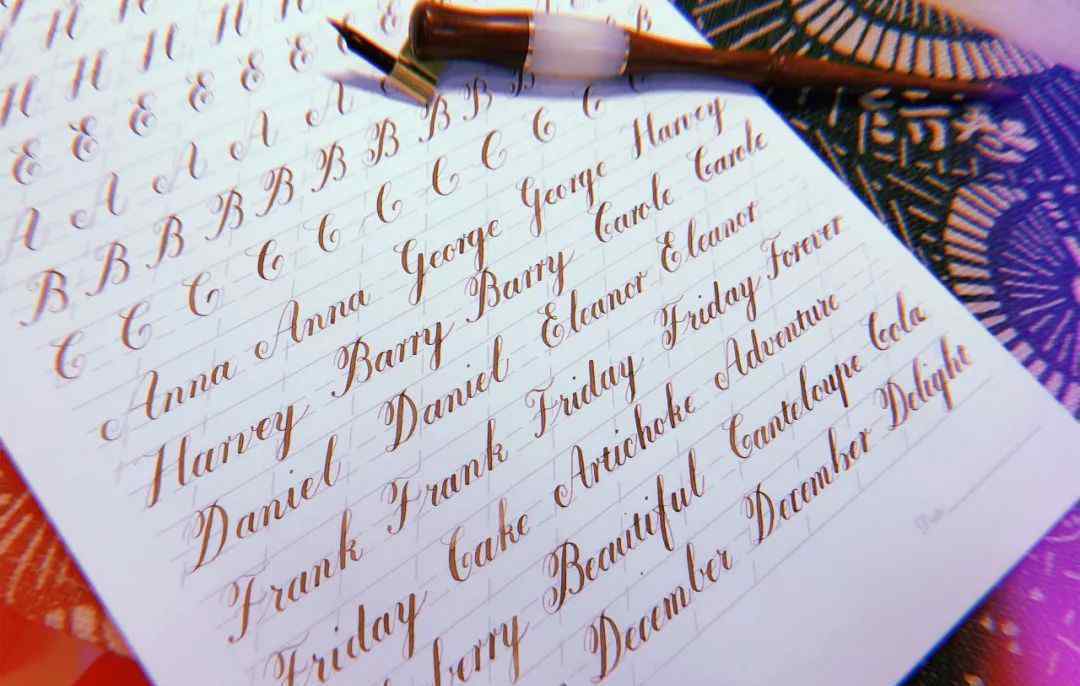 H H H H
E E E E E E
A A A A A
B B B B B B B B B B
C C C C C C C C C C
Anna Anna George George Harvey
Harvey Barry Barry Carole Carole
Daniel Daniel Eleanor Eleanor
Frank Frank Friday Friday Forever
Friday Cake Artichoke Adventure
berry Beautiful Canteloupe Cola
December December Delight